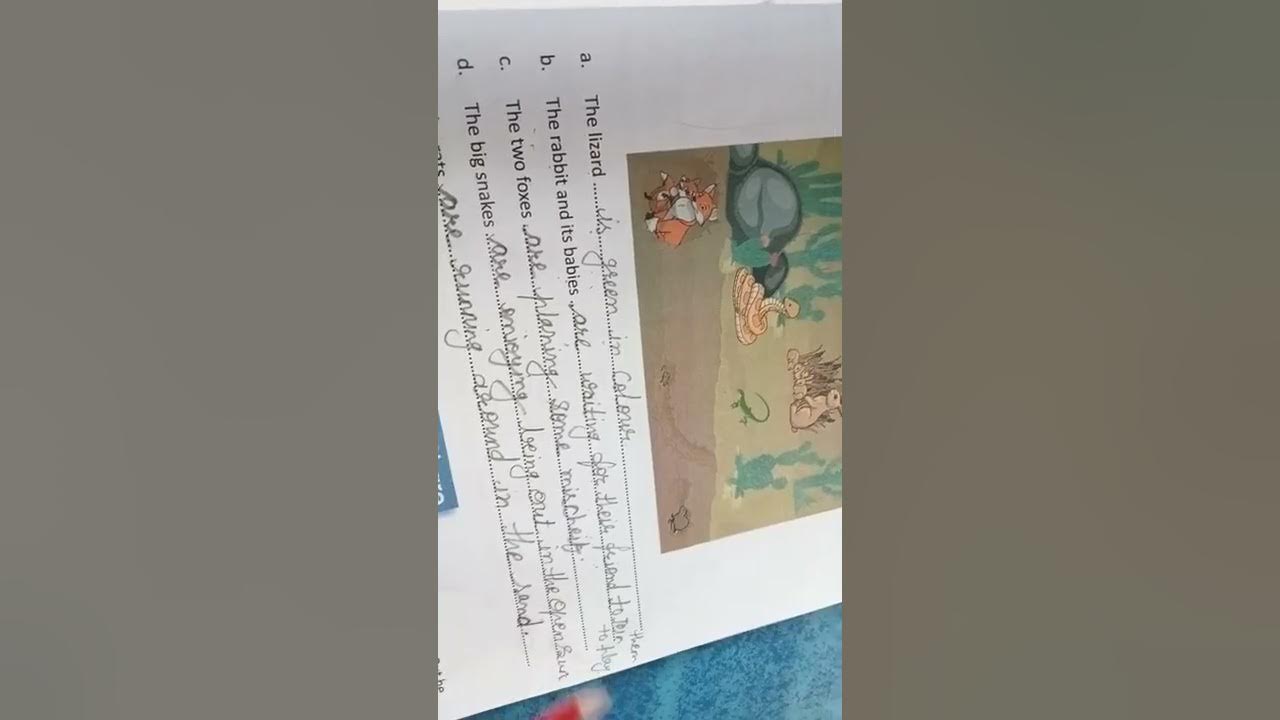 a. The lizard ......is green in colour
b. The rabbit and its babies ..are waiting for their friend to join them
to play
c. The two foxes ..are planing some mischeif.
d. The big snakes ..are enjoying being out in the open sun
are running around in the sand.